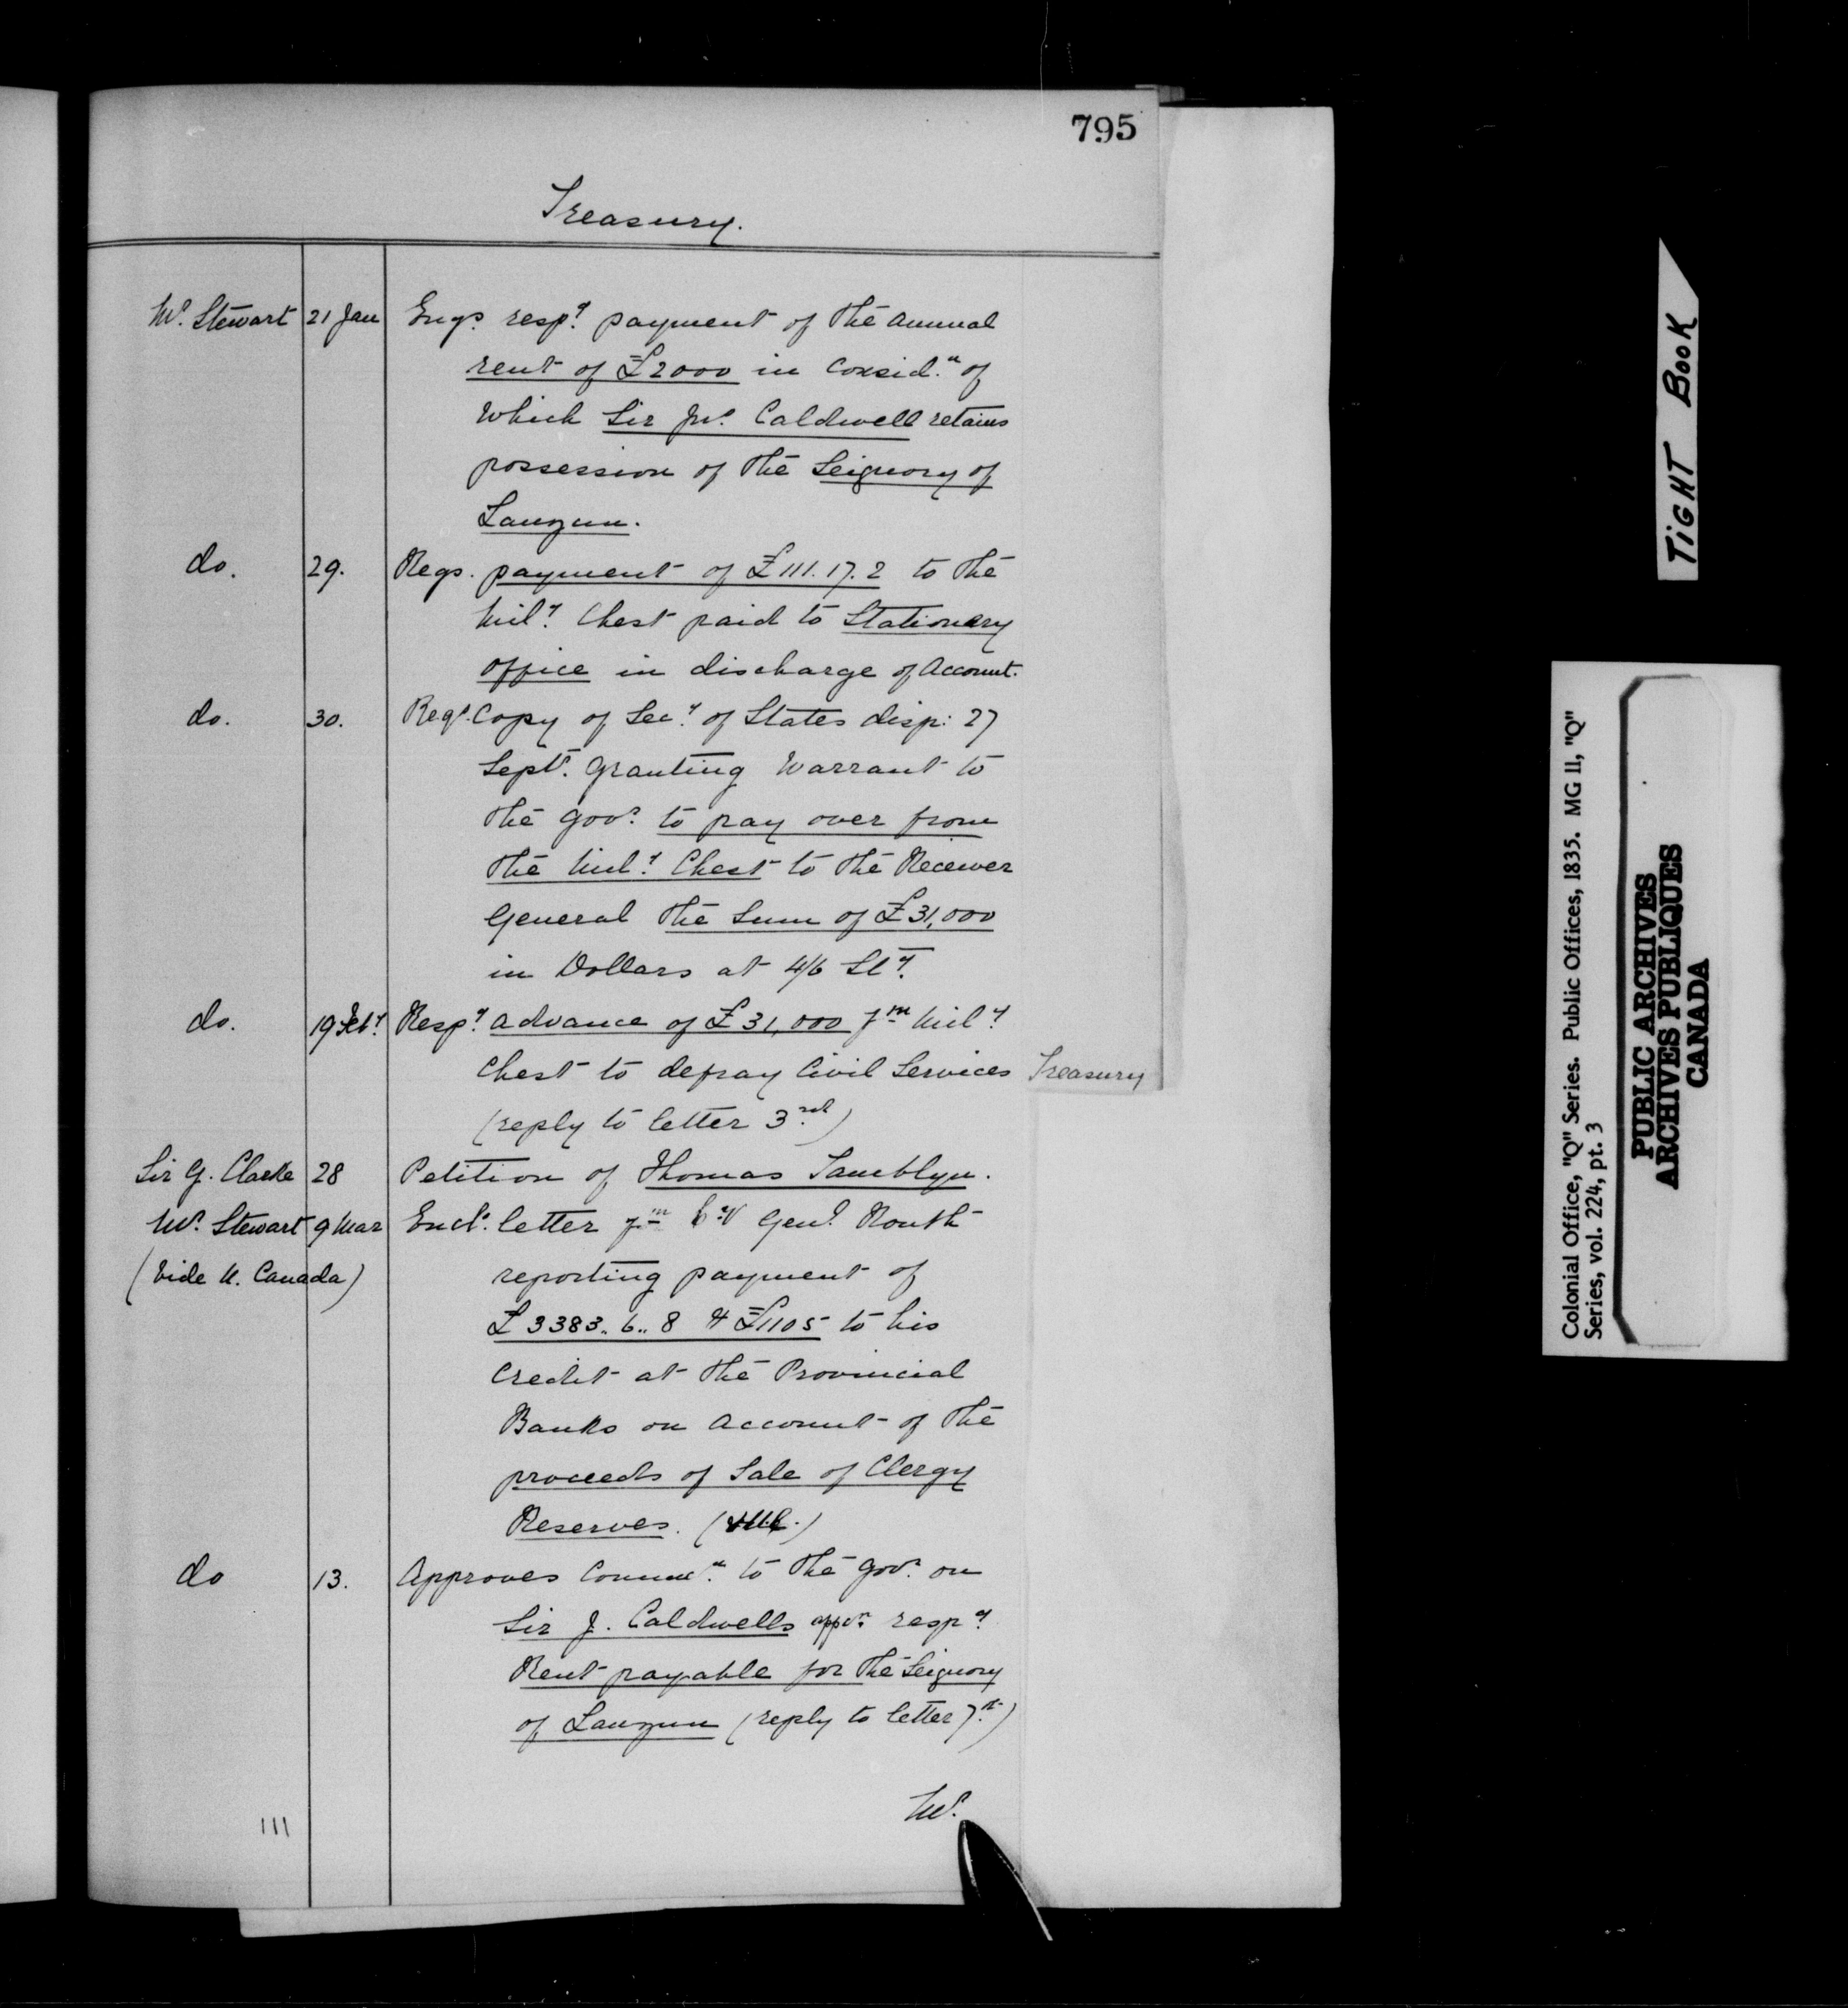 795
Treasury.
Mr. Stewart 21 Jan Enqs. respg. payment of the annual
rent of £2000 in Considn. of
which Sir Jno. Caldwell retains
possession of the Seignory of
Lauzun.
do. 29. Reqs. payment of £111.17.2 to the
Mily. Chest paid to Stationery
office in discharge of Account.
do. 30. Reqs. Copy of Secy. of States disp: 27
Septr. granting Warrant to
the Govr. to pay over from
the Mily. Chest to the Receiver
General the Sum of £31,000
in Dollars at 4/6 Stg.
do. 19 Feby. Respg. advance of £31,000 fm Mily.
Chest to defray Civil Services Treasury
(reply to letter 3rd.)
Sir G. Clarke 28 Petition of Thomas Tamblyn.
Mr. Stewart 9 Mar Encls. letter fm Genl. Routh
(vide U. Canada) reporting payment of
£3383..6..8 & £1105 to his
Credit at the Provincial
Banks on account of the
proceeds of Sale of Clergy
Reserves.
do 13. Approves Commn. to the Govr. on
Sir J. Caldwells appn. respg.
Rent payable for the Seignory
of Lauzun (reply to letter 7th.)
Mr.
111
TIGHT BOOK
Colonial Office, "Q" Series. Public Offices, 1835. MG 11, "Q"
Series, vol. 224, pt. 3
PUBLIC ARCHIVES
ARCHIVES PUBLIQUES
CANADA